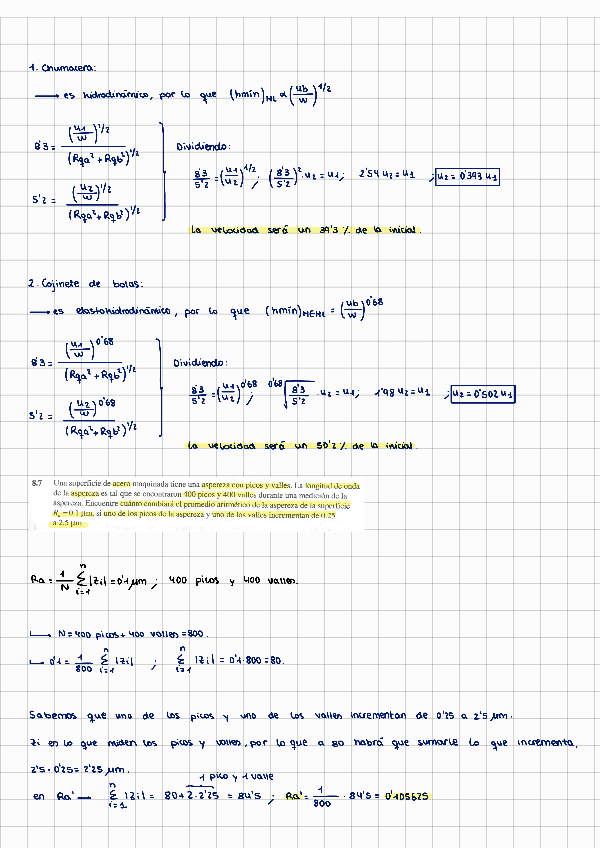 1. Chumacera:
⟶ es hidrodinámico, por lo que (hmín)HL ∝ (ub/w)^1/2
8'3 = (u1/w)^1/2 / (Rqa² + Rqb²)^1/2
5'2 = (u2/w)^1/2 / (Rqa² + Rqb²)^1/2
Dividiendo:
8'3/5'2 = (u1/u2)^1/2 ; (8'3/5'2)² u2 = u1; 2'54 u2 = u1 ; u2 = 0'393 u1
La velocidad será un 39'3 % de la inicial.
2. Cojinete de bolas:
⟶ es elastohidrodinámico, por lo que (hmín)HEHL = (ub/w)^0'68
8'3 = (u1/w)^0'68 / (Rqa² + Rqb²)^1/2
5'2 = (u2/w)^0'68 / (Rqa² + Rqb²)^1/2
Dividiendo:
8'3/5'2 = (u1/u2)^0'68 ; 0'68√(8'3/5'2) · u2 = u1; 1'98 u2 = u1 ; u2 = 0'502 u1
La velocidad será un 50'2 % de la inicial.
8.7 Una superficie de acero maquinada tiene una aspereza con picos y valles. La longitud de onda
de la aspereza es tal que se encontraron 400 picos y 400 valles durante una medición de la
aspereza. Encuentre cuánto cambiará el promedio aritmético de la aspereza de la superficie
Ra = 0.1 μm, si uno de los picos de la aspereza y uno de los valles incrementan de 0.25
a 2.5 μm
Ra = 1/N Σ(i=1, n) |Zi| = 0'1 μm ; 400 picos y 400 valles.
↳ N = 400 picos + 400 valles = 800.
↳ 0'1 = 1/800 Σ(i=1, n) |Zi| ; Σ(i=1, n) |Zi| = 0'1·800 = 80.
Sabemos que uno de los picos y uno de los valles incrementan de 0'25 a 2'5 μm.
Zi es lo que miden los picos y valles, por lo que a 80 habrá que sumarle lo que incrementa,
2'5 - 0'25 = 2'25 μm.
1 pico y 1 valle
en Ra' — Σ(i=1, n) |Zi| = 80 + 2·2'25 = 84'5 ; Ra' = 1/800 · 84'5 = 0'105625